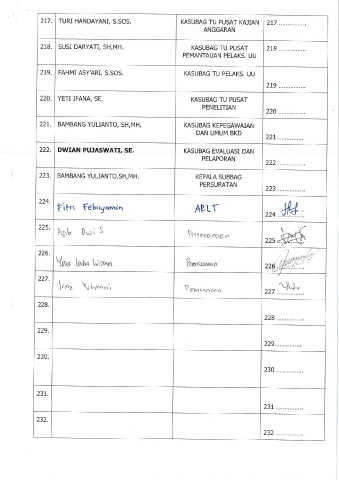 217. TURI HANDAYANI, S.SOS. KASUBAG TU PUSAT KAJIAN 217 ..............
ANGGARAN
218. SUSI DARYATI, SH,MH. KASUBAG TU PUSAT 218 ..............
PEMANTAUAN PELAKS. UU
219. FAHMI ASY'ARI, S.SOS. KASUBAG TU PELAKS. UU
219 ..............
220. YETI IFANA, SE. KASUBAG TU PUSAT
PENELITIAN 220 ..............
221. BAMBANG YULIANTO, SH,MH. KASUBAG KEPEGAWAIAN
DAN UMUM BKD 221 ..............
222. DWIAN PUJASWATI, SE. KASUBAG EVALUASI DAN
PELAPORAN 222 ..............
223. BAMBANG YULIANTO,SH,MH. KEPALA SUBBAG
PERSURATAN 223 ..............
224. Fitri Febriyamin 224 ..............
225. Dwi S 225 ..............
226. 226 ..............
227. 227 ..............
228.
228 ..............
229.
229..............
230.
230 ..............
231.
231 ..............
232.
232 ..............